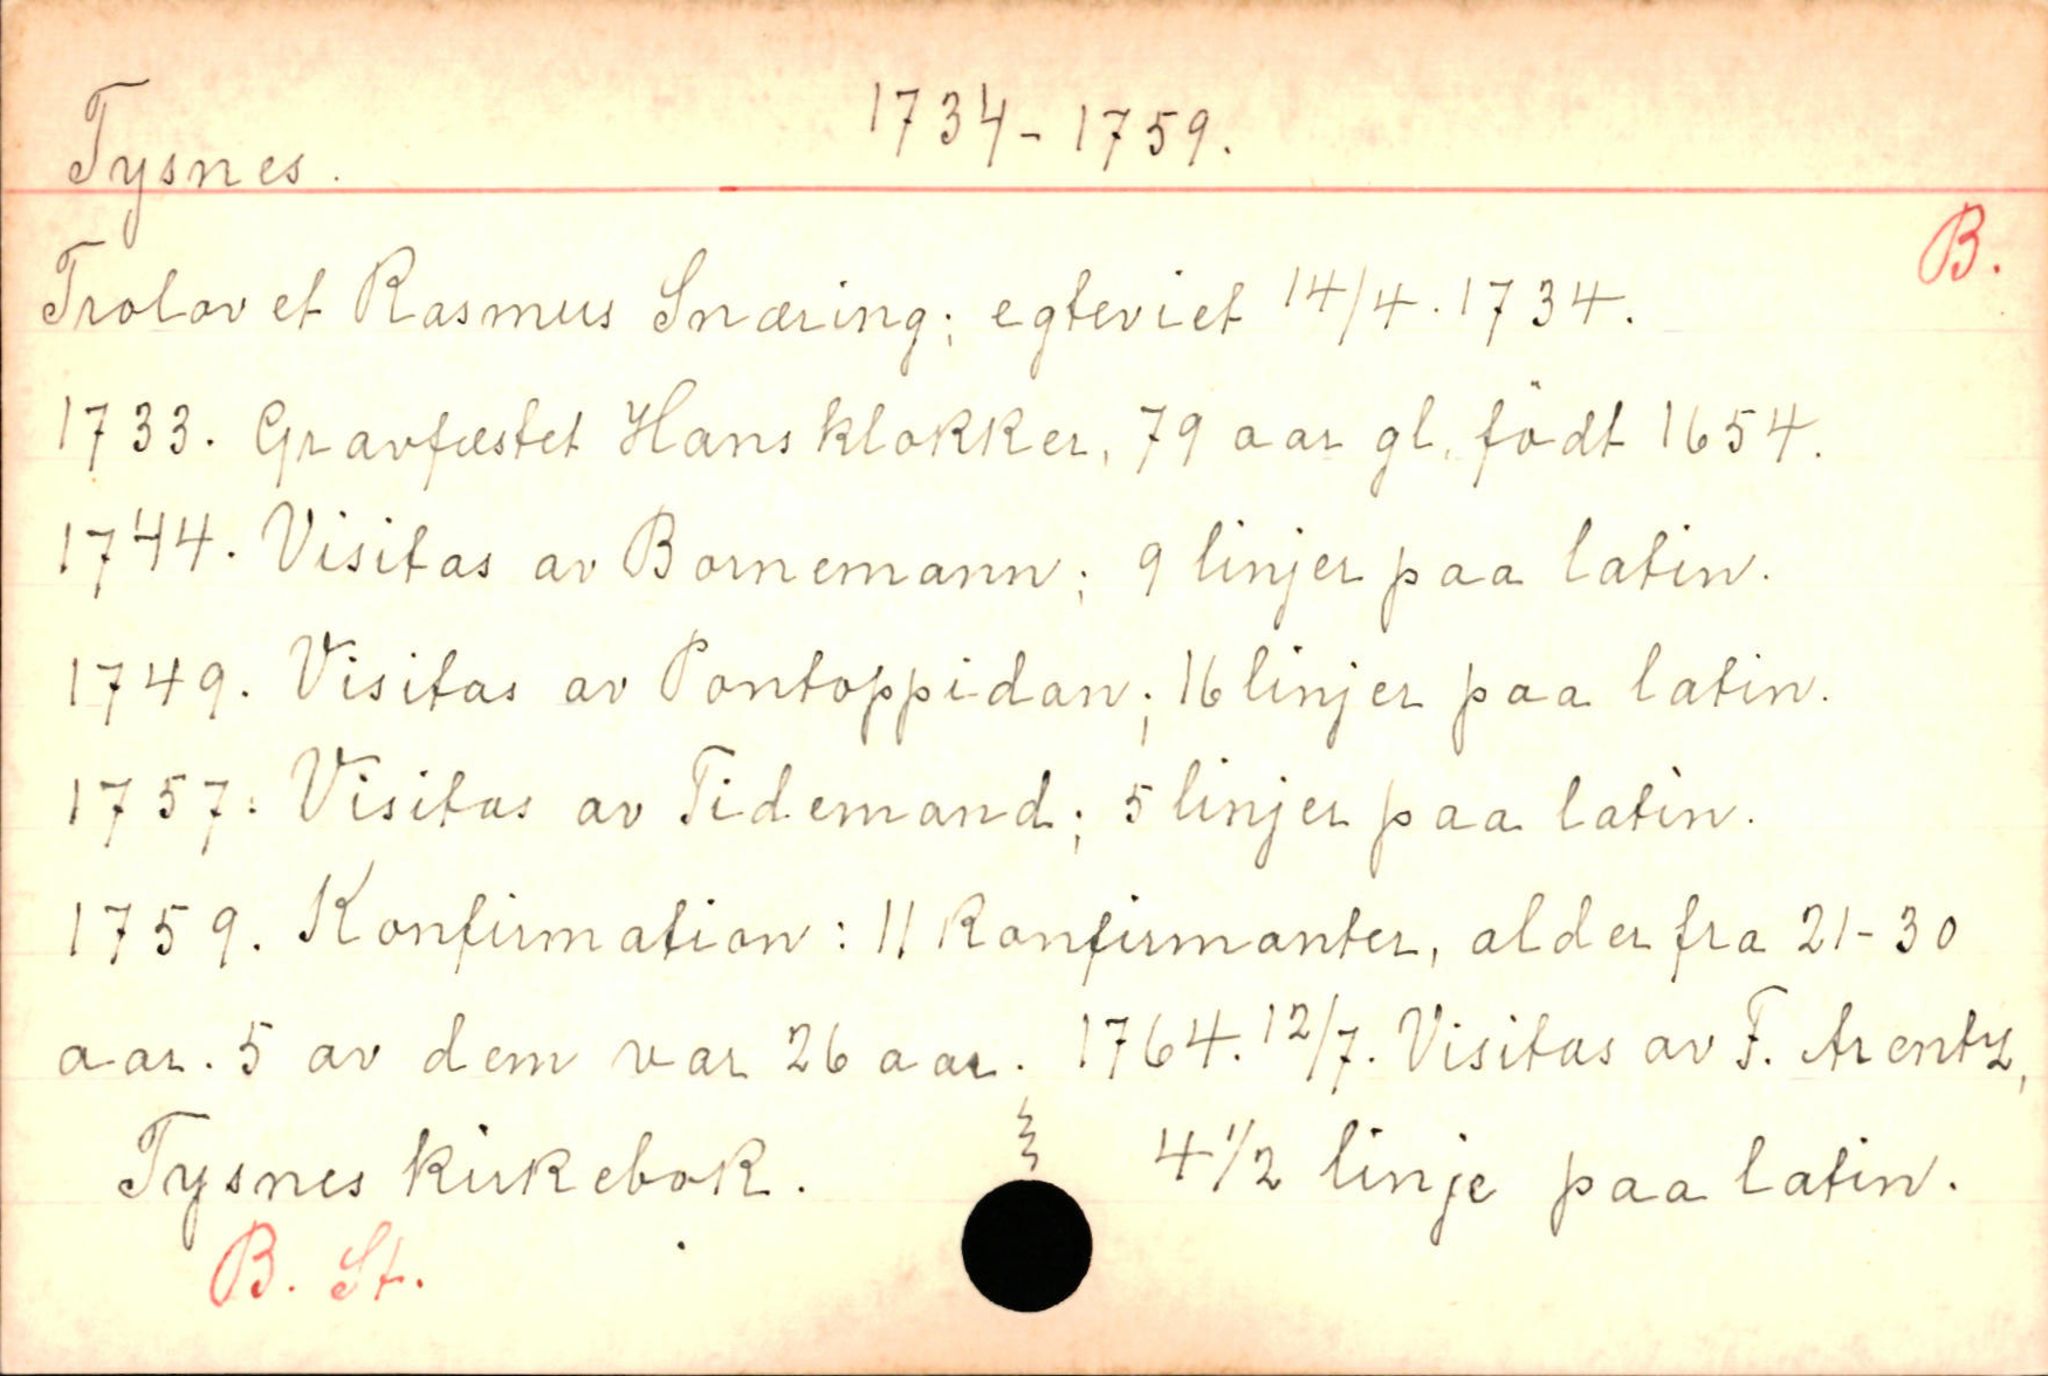 Tysnes. 1734-1759.
B.
Trolovet Rasmus Snæring; egteviet 14/4. 1734.
1733. Gravfæstet Hans klokker, 79 aar gl. födt 1654.
1744. Visitas av Bornemann; 9 linjer paa latin.
1749. Visitas av Pontoppidan; 16 linjer paa latin.
1757. Visitas av Tidemand; 5 linjer paa latin.
1759. Konfirmation: 11 konfirmanter, alder fra 21-30
aar. 5 av dem var 26 aar. 1764. 12/7. Visitas av F. Arentz,
Tysnes kirkebok. 4 1/2 linje paa latin.
B. St.